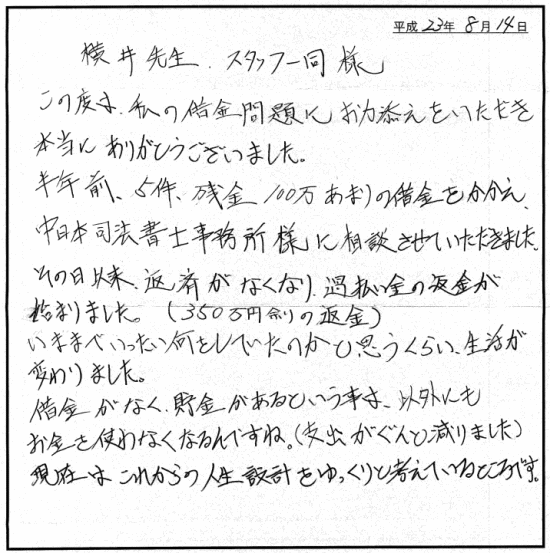 平成 23年 8月 14日
横井先生、スタッフ一同様
この度は、私の借金問題にお力添えをいただき
本当にありがとうございました。
半年前、5件、残金100万あまりの借金をかかえ、
中日本司法書士事務所様に相談させていただきました。
その日以来、返済がなくなり、過払い金の返金が
始まりました。(350万円余りの返金)
いままでいったい何をしていたのかと思うくらい、生活が
変わりました。
借金がなく、貯金があるという事は、以外にも
お金を使わなくなるんですね。(支出がぐんと減りました)
現在はこれからの人生設計をゆっくりと考えているところです。